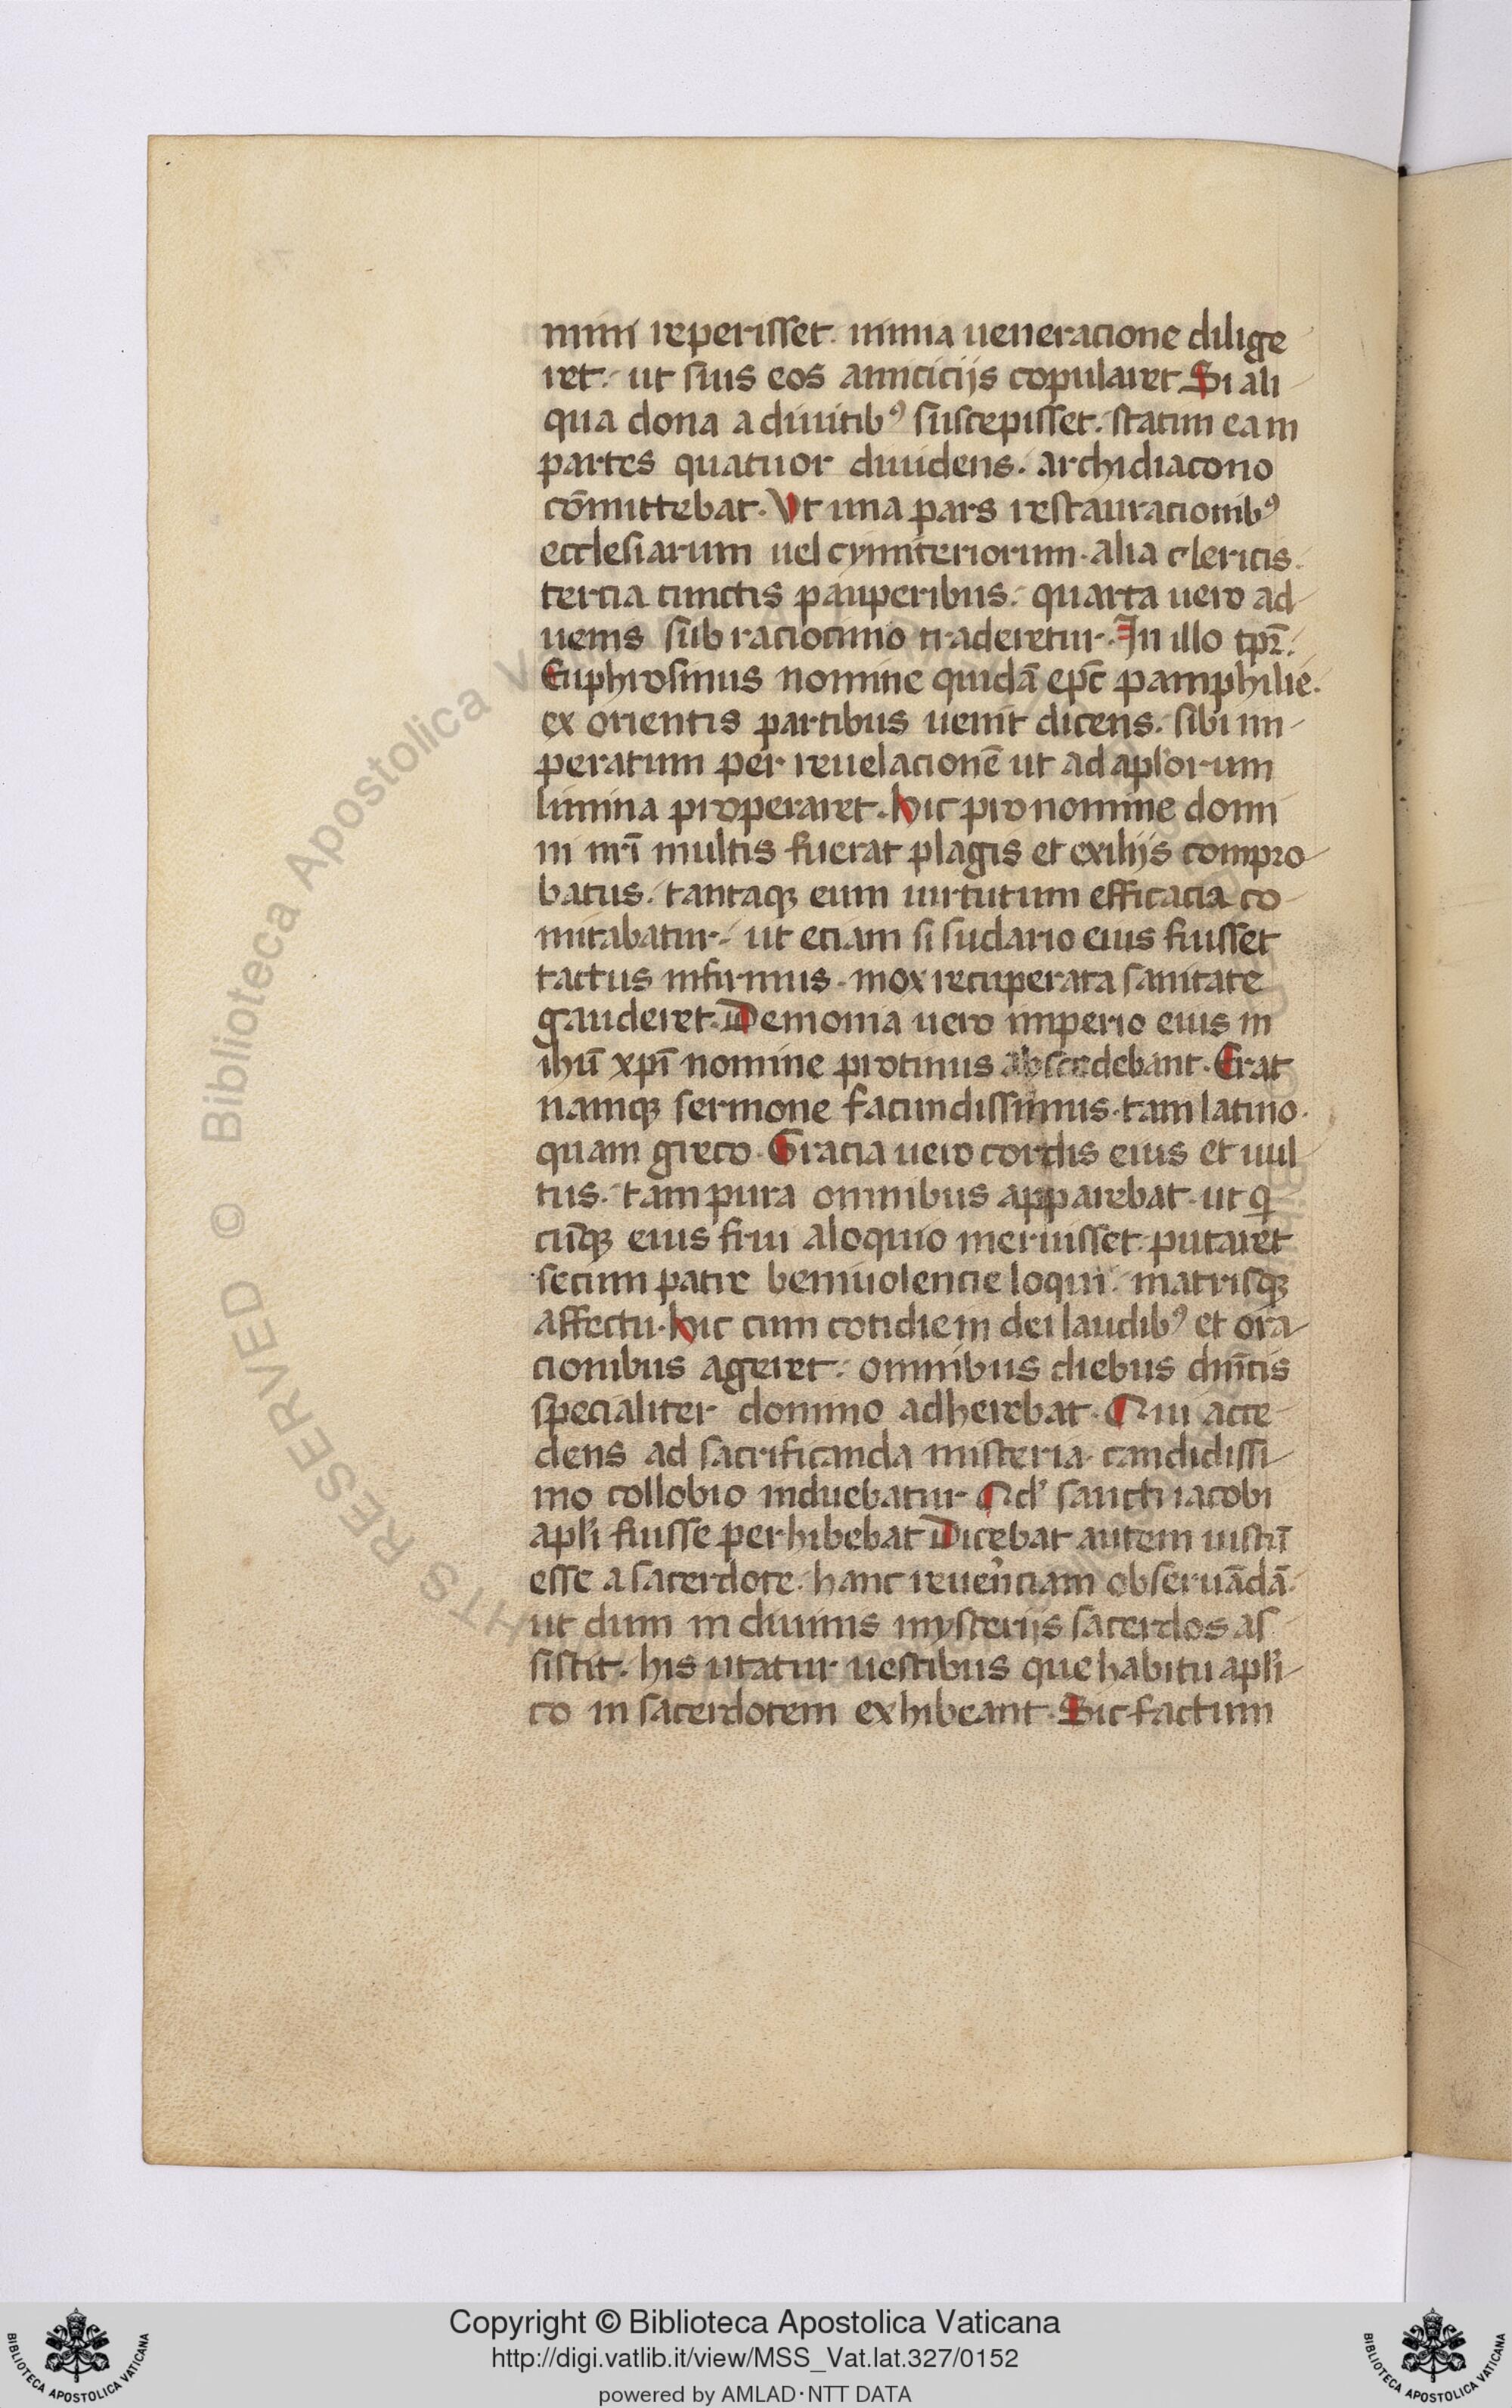 mini reperisset. nimia ueneracione dilige
ret. ut suis eos amiciciis copularet. Si ali
qua dona a diuitibꝰ suscepisset. statim ea in
partes quatuor diuidens. archidiacono
cōmittebat. Vt una pars restauracionibꝰ
ecclesiarum uel cymiteriorum. alia clericis.
tercia cunctis pauperibus. quarta uero ad
uenis sub raciocinio traderetur. In illo tpr̄.
Euphrosinus nomine quidā ep̄c pamphilie.
ex orientis partibus uenit dicens. sibi im
peratum per reuelacionē ut ad apl'orum
limina properaret. hic pro nomine domi
ni nr̄i multis fuerat plagis et exiliis compro
batus. tantaqꝫ eum uirtutum efficacia co
mitabatur. ut eciam si sudario eius fuisset
tactus infirmus. mox recuperata sanitate
gauderet. Demonia uero imperio eius in
ihū xp̄i nomine protinus abscedebant. Erat
namqꝫ sermone facundissimus. tam latino.
quam greco. Gracia uero cordis eius et uul
tus. tam pura omnibus apparebat. ut q̄
cūqꝫ eius frui aloquio meruisset. putaret
secum patre beniuolencie loqui. matrisqꝫ
affectu. hic cum cotidie in dei laudibꝰ et ora
cionibus ageret. omnibus diebus dn̄icis
specialiter domino adherebat. Qui acce
dens ad sacrificanda misteria. candidissi
mo collobio induebatur. Qd' sancti iacobi
apl'i fuisse perhibebat. Dicebat autem iustū
esse a sacerdote. hanc reuerenciam obseruādā.
ut dum in diuinis mysteriis sacerdos as
sistit. his utatur uestibus que habitu apl'i
co in sacerdotem exhibeant. Sic factum
© Biblioteca Apostolica V
RESERVED
Copyright © Biblioteca Apostolica Vaticana
http://digi.vatlib.it/view/MSS_Vat.lat.327/0152
powered by AMLAD·NTT DATA
BIBLIOTECA APOSTOLICA VATICANA
BIBLIOTECA APOSTOLICA VATICANA